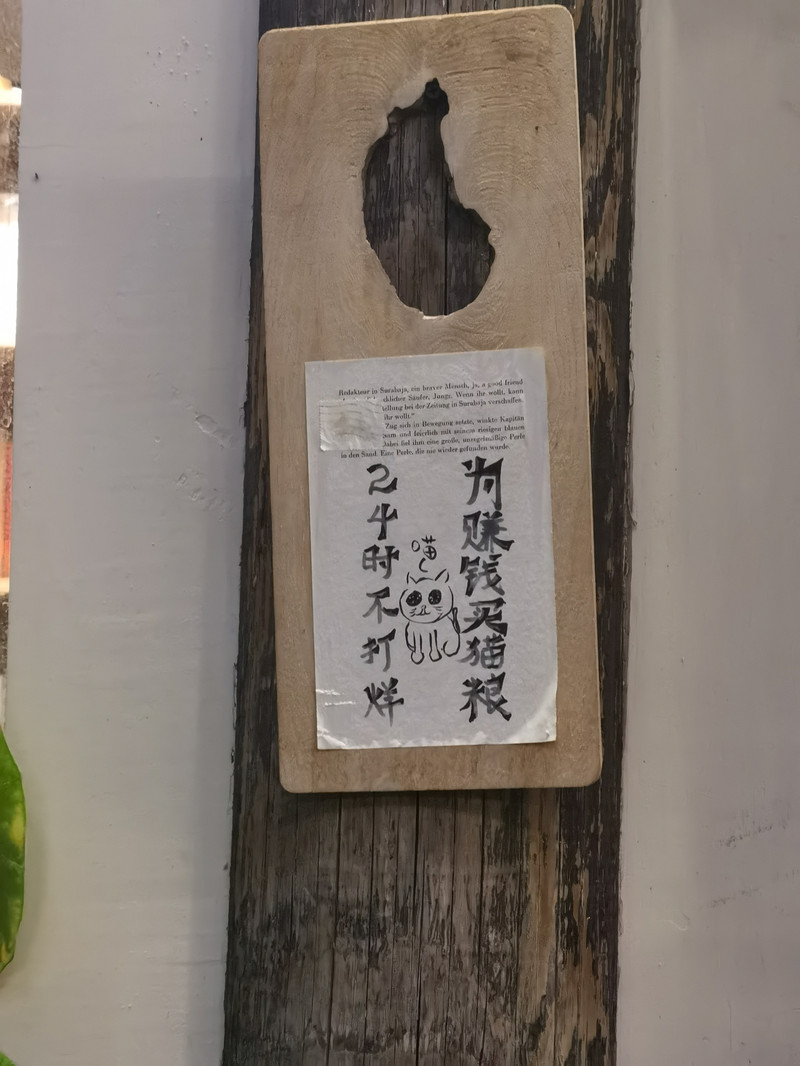 Redakteur in Surabaja, ein braver Mensch, ja, a good friend
klicher Säufer, Jungs. Wenn ihr wollt, kann
tellung bei der Zeitung in Surabaja verschaffen,
ihr wollt."
Zug sich in Bewegung setzte, winkte Kapitän
und feierlich mit seinem riesigen blauen
Dabei fiel ihm eine große, unregelmäßige Perle
in den Sand. Eine Perle, die nie wieder gefunden wurde.
为赚钱买猫粮
喵
24时不打烊